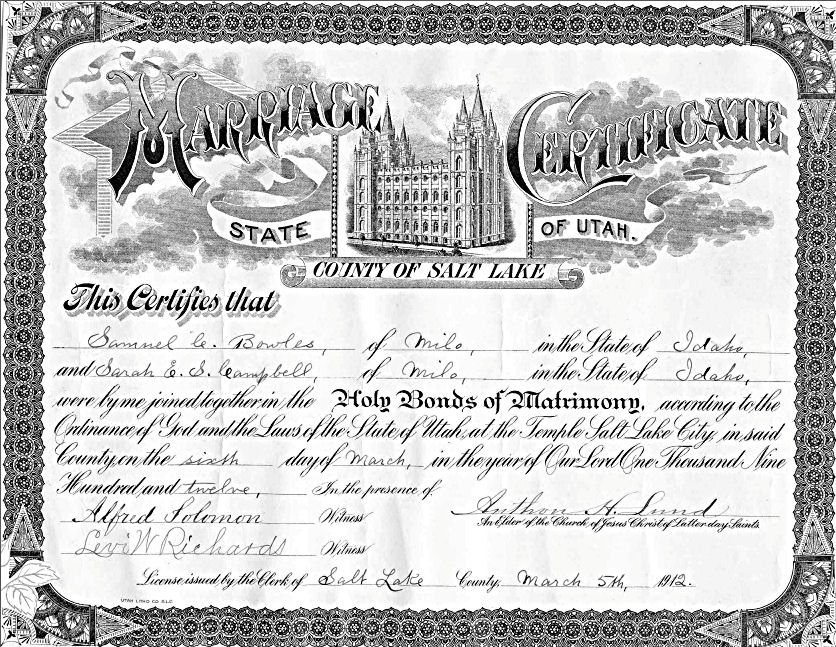 MARRIAGE CERTIFICATE
STATE OF UTAH.
COUNTY OF SALT LAKE
This Certifies that
Samuel C. Bowles, of Milo, in the State of Idaho,
and Sarah E. S. Campbell, of Milo, in the State of Idaho,
were by me joined together in the Holy Bonds of Matrimony, according to the
Ordinance of God and the Laws of the State of Utah, at the Temple Salt Lake City, in said
County, on the sixth day of March, in the year of Our Lord One Thousand Nine
Hundred and twelve, In the presence of
Anthon H. Lund
Alfred Solomon Witness
An Elder of the Church of Jesus Christ of Latter-day Saints.
Levi W Richards Witness
License issued by the Clerk of Salt Lake County March 5th, 1912.
UTAH LITHO CO. S.L.C.